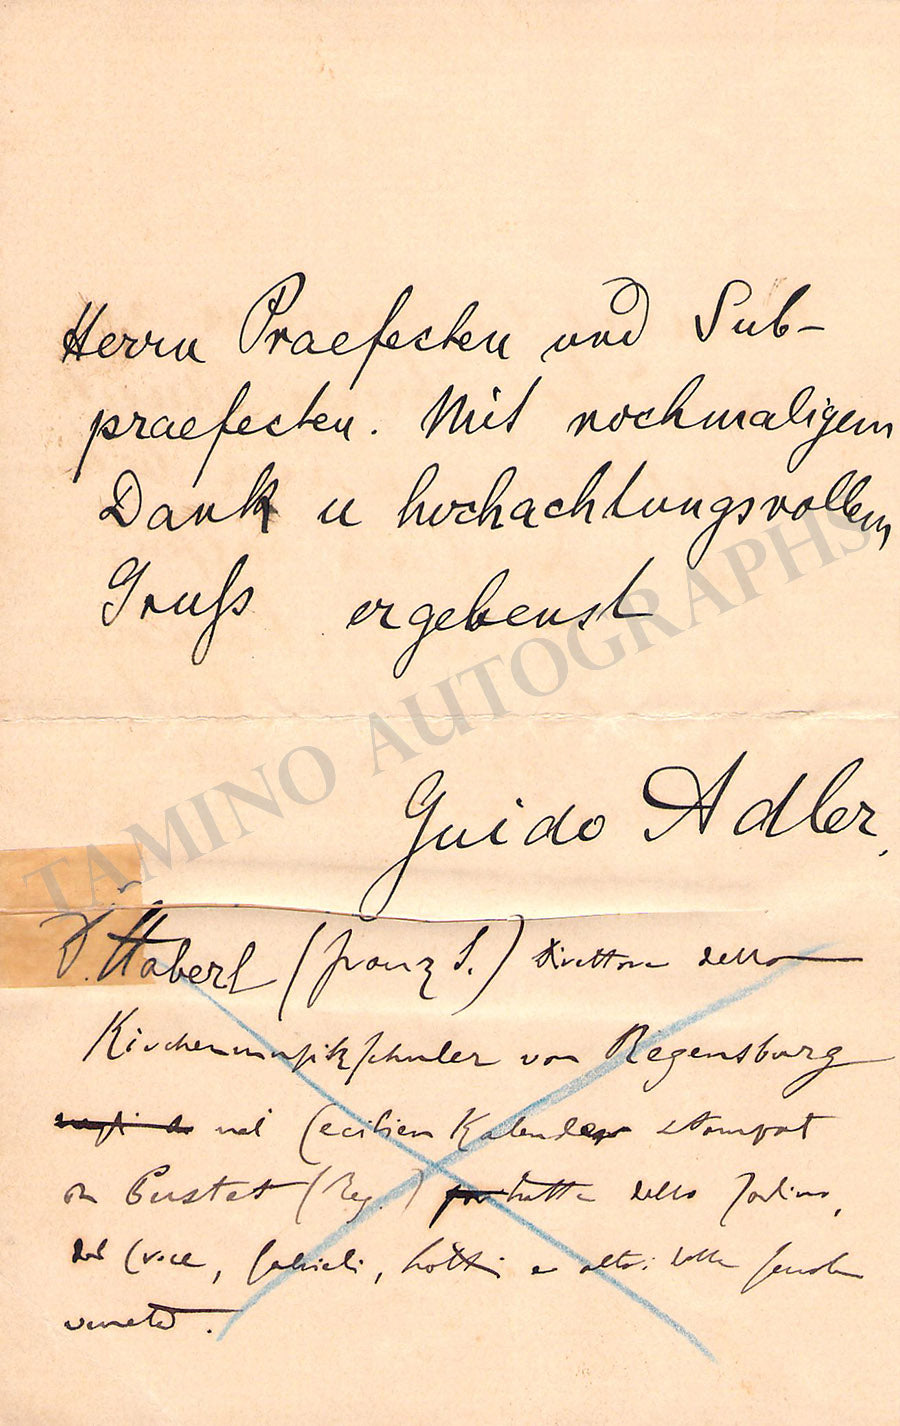 Herrn Praefecten und Sub-
praefecten. Mit nochmaligem
Dank u hochachtungsvollem
Gruß ergebenst
TAMINO AUTOGRAPHS
Guido Adler,
D. Haberl (Franz S.) Direttore dello
Kirchenmusikschuler von Regensburg
nel Cecilien Kalender stampat
Pustet (Reg.) tratta dello Zarlino,
del Croce, Gabrieli, Lotti e altri della scuola
veneta.